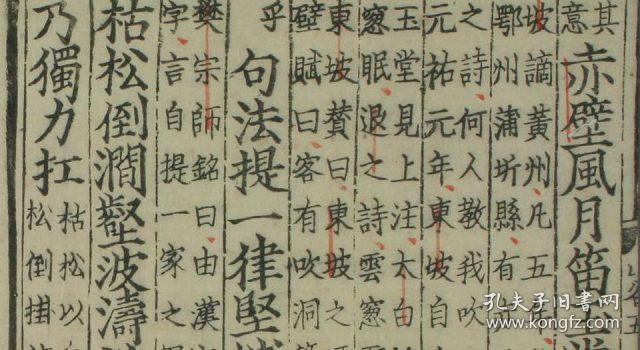 其
意
赤壁風月笛
坡謫黃州、凡五
鄂州蒲圻縣、有
之詩、何人教我吹
元祐元年東坡自
玉堂見上注、太白
窻眠、退之詩雲窻
東坡贊曰東坡之
壁賦曰、客有吹洞
乎
句法提一律堅
樊宗師銘曰、由漢
字言自提一家之
枯松倒澗壑波濤
乃獨力扛
枯松以
松倒掛
孔夫子旧书网
www.kongfz.com